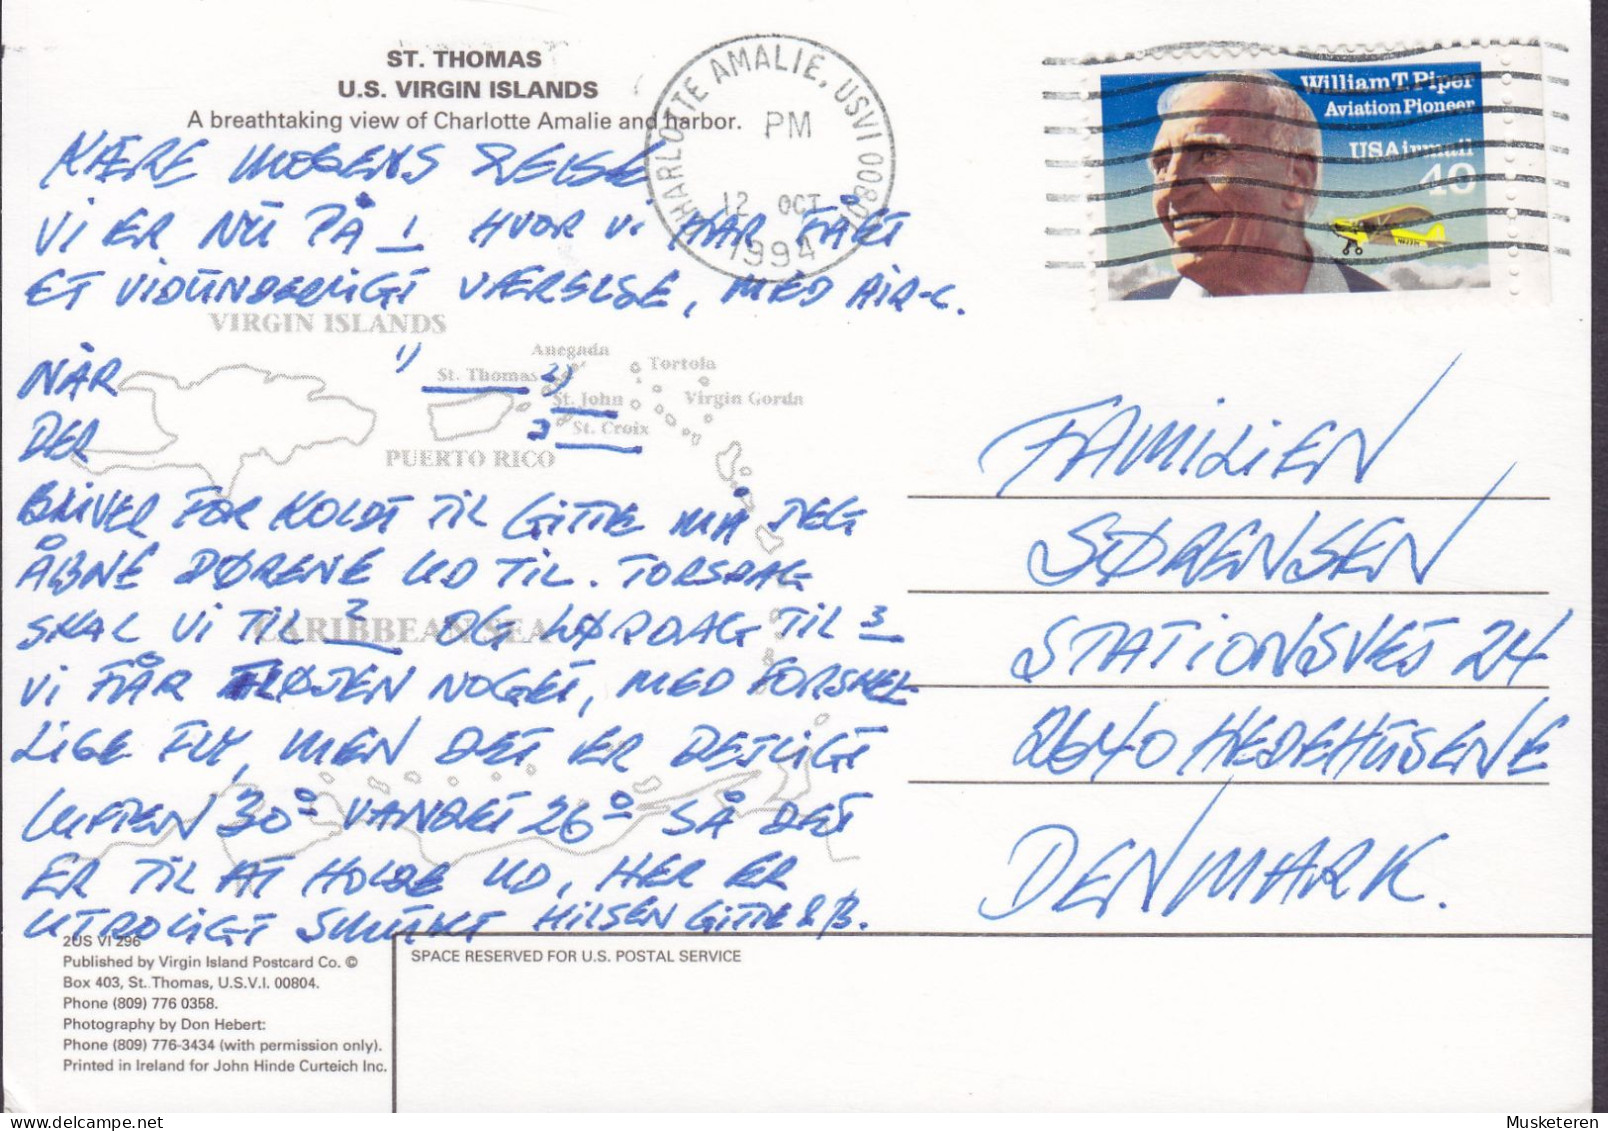 ST. THOMAS
U.S. VIRGIN ISLANDS
A breathtaking view of Charlotte Amalie and harbor.
CHARLOTTE AMALIE, USVI 00801
PM
12 OCT
1994
William T. Piper
Aviation Pioneer
USAirmail
40
KÆRE MOGENS
VI ER NU PÅ 1 HVOR VI HAR FÅET
ET VIDUNDERLIGT VÆRELSE, MED AIR-C.
VIRGIN ISLANDS
NÅR
DER
1) St. Thomas
Anegada
Tortola
2) St. John
Virgin Gorda
3 St. Croix
PUERTO RICO
BLIVER FOR KOLDT TIL GITTE MÅ JEG
ÅBNE DØRENE UD TIL. TORSDAG
SKAL VI TIL 2 OG LØRDAG TIL 3
CARIBBEAN SEA
VI FÅR FLØJEN NOGET, MED FORSKEL-
LIGE FLY, MEN DET ER DEJLIGT
LUFTEN 30° VANDET 26° SÅ DET
ER TIL AT HOLDE UD, HER ER
UTROLIGT SMUKT HILSEN GITTE & B.
FAMILIEN
SØRENSEN
STATIONSVEJ 24
2640 HEDEHUSENE
DENMARK.
2US VI 296
Published by Virgin Island Postcard Co. ©
Box 403, St. Thomas, U.S.V.I. 00804.
Phone (809) 776 0358.
Photography by Don Hebert:
Phone (809) 776-3434 (with permission only).
Printed in Ireland for John Hinde Curteich Inc.
SPACE RESERVED FOR U.S. POSTAL SERVICE
Musketeren